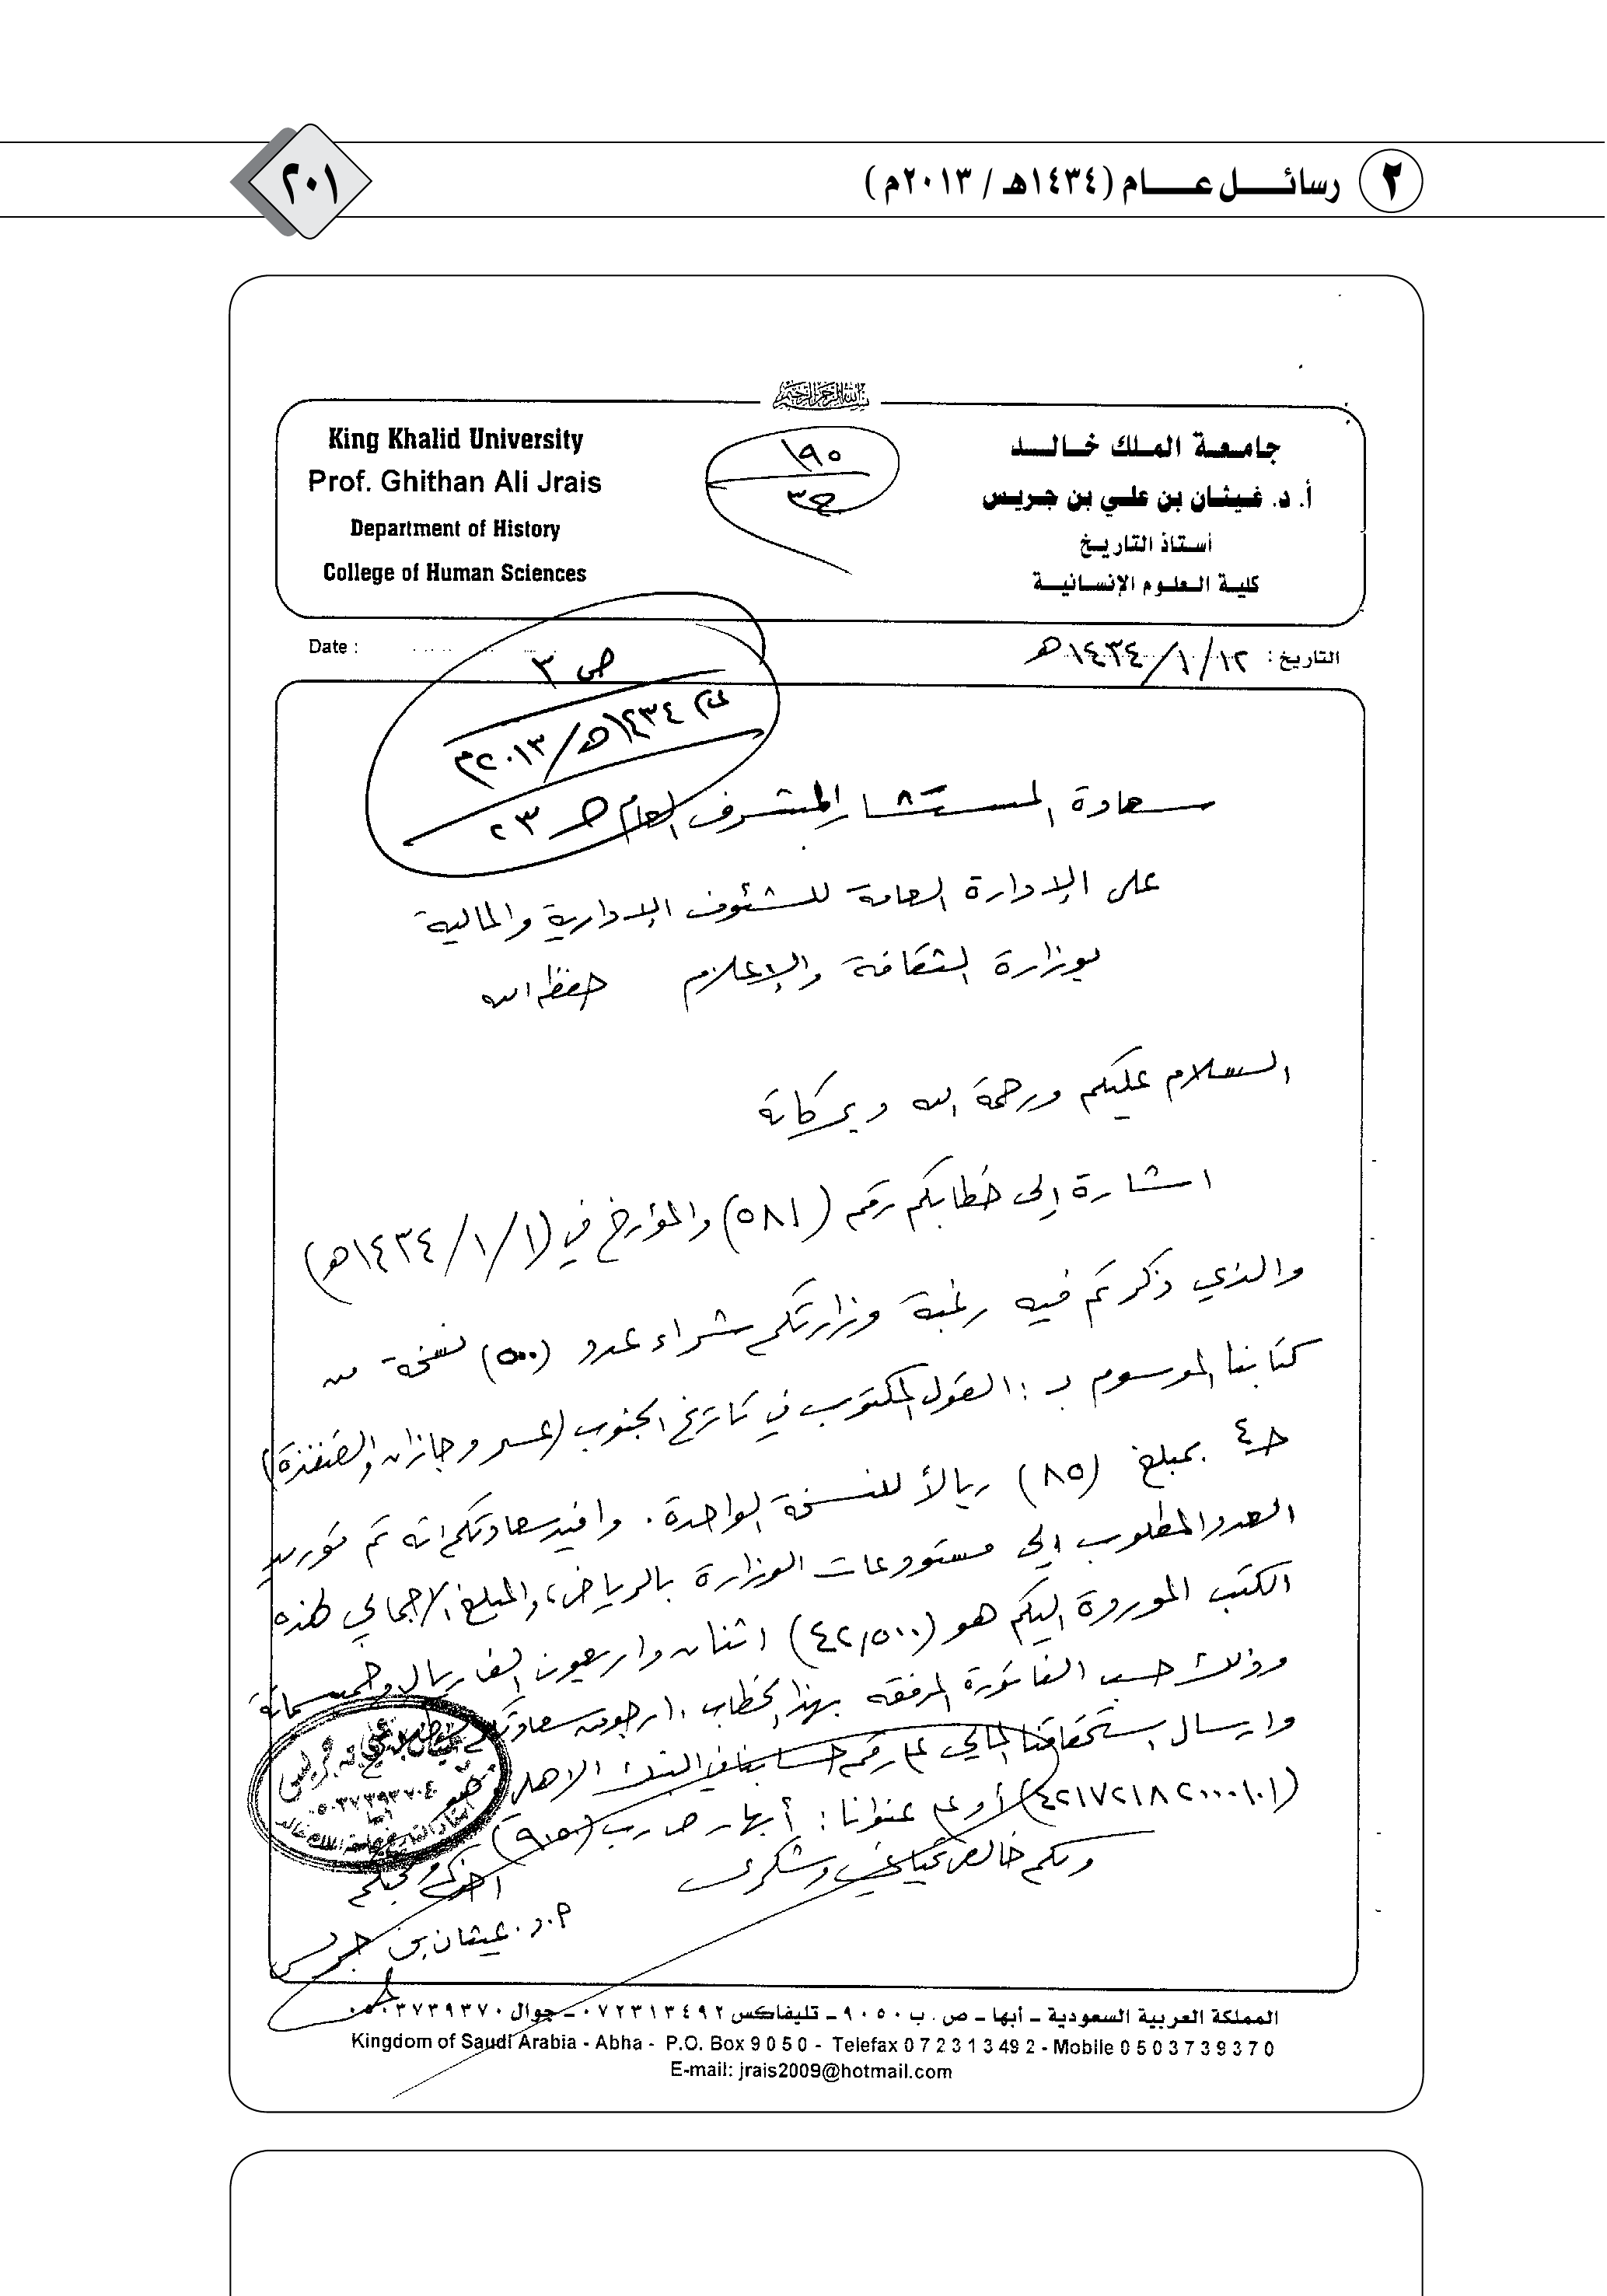 ٢ رسائل عام (١٤٣٤هـ / ٢٠١٣م)
٢٠١
جامعة الملك خالد
أ. د. غيثان بن علي بن جريس
أستاذ التاريخ
كلية العلوم الإنسانية
King Khalid University
Prof. Ghithan Ali Jrais
Department of History
College of Human Sciences
١٩٥
ج٣
التاريخ: ١٢/١/١٤٣٤هـ
Date :
ص ٣
عام ١٤٣٤هـ/٢٠١٣م
حـ ٢٣
سعادة المستشار المشرف العام
على الإدارة العامة للشئون الإدارية والمالية
بوزارة الثقافة والإعلام حفظه الله
السلام عليكم ورحمة الله وبركاته
اشارة إلى خطابكم رقم (٥٨١) والمؤرخ في (١/١/١٤٣٤هـ)
والذي ذكرتم فيه رغبة وزارتكم شراء عدد (٥٠٠) نسخة من
كتابنا الموسوم بـ : القول المكتوب في تاريخ الجنوب (عسير وجازان والقنفذة)
جـ٤ بمبلغ (٨٥) ريالاً للنسخة الواحدة. وافيد سعادتكم انه تم توريد
العدد المطلوب إلى مستودعات الوزارة بالرياض، والمبلغ الاجمالي لهذه
الكتب الموردة اليكم هو (٤٢,٥٠٠) اثنان واربعون الف ريال وخمسمائة
وذلك حسب الفاتورة المرفقه بهذا الخطاب. ارجو من سعادتكم
وارسال استحقاقنا المالي على رقم حسابنا في البنك الاهلي
(٤٢١٧٢١٨٢٠٠٠١٠١) أو على عنوانا : أبها ـ ص ب (٩٠٥٠)
ولكم خالص تحياتي وشكري
اخوكم ومحبكم
أ.د. غيثان بن جريس
المملكة العربية السعودية ـ أبها ـ ص. ب ٩٠٥٠ ـ تليفاكس ٠٧٢٣١٣٤٩٢ ـ جوال ٠٥٠٣٧٣٩٣٧٠
Kingdom of Saudi Arabia - Abha - P.O. Box 9 0 5 0 - Telefax 0 7 2 3 1 3 49 2 - Mobile 0 5 0 3 7 3 9 3 7 0
E-mail: jrais2009@hotmail.com